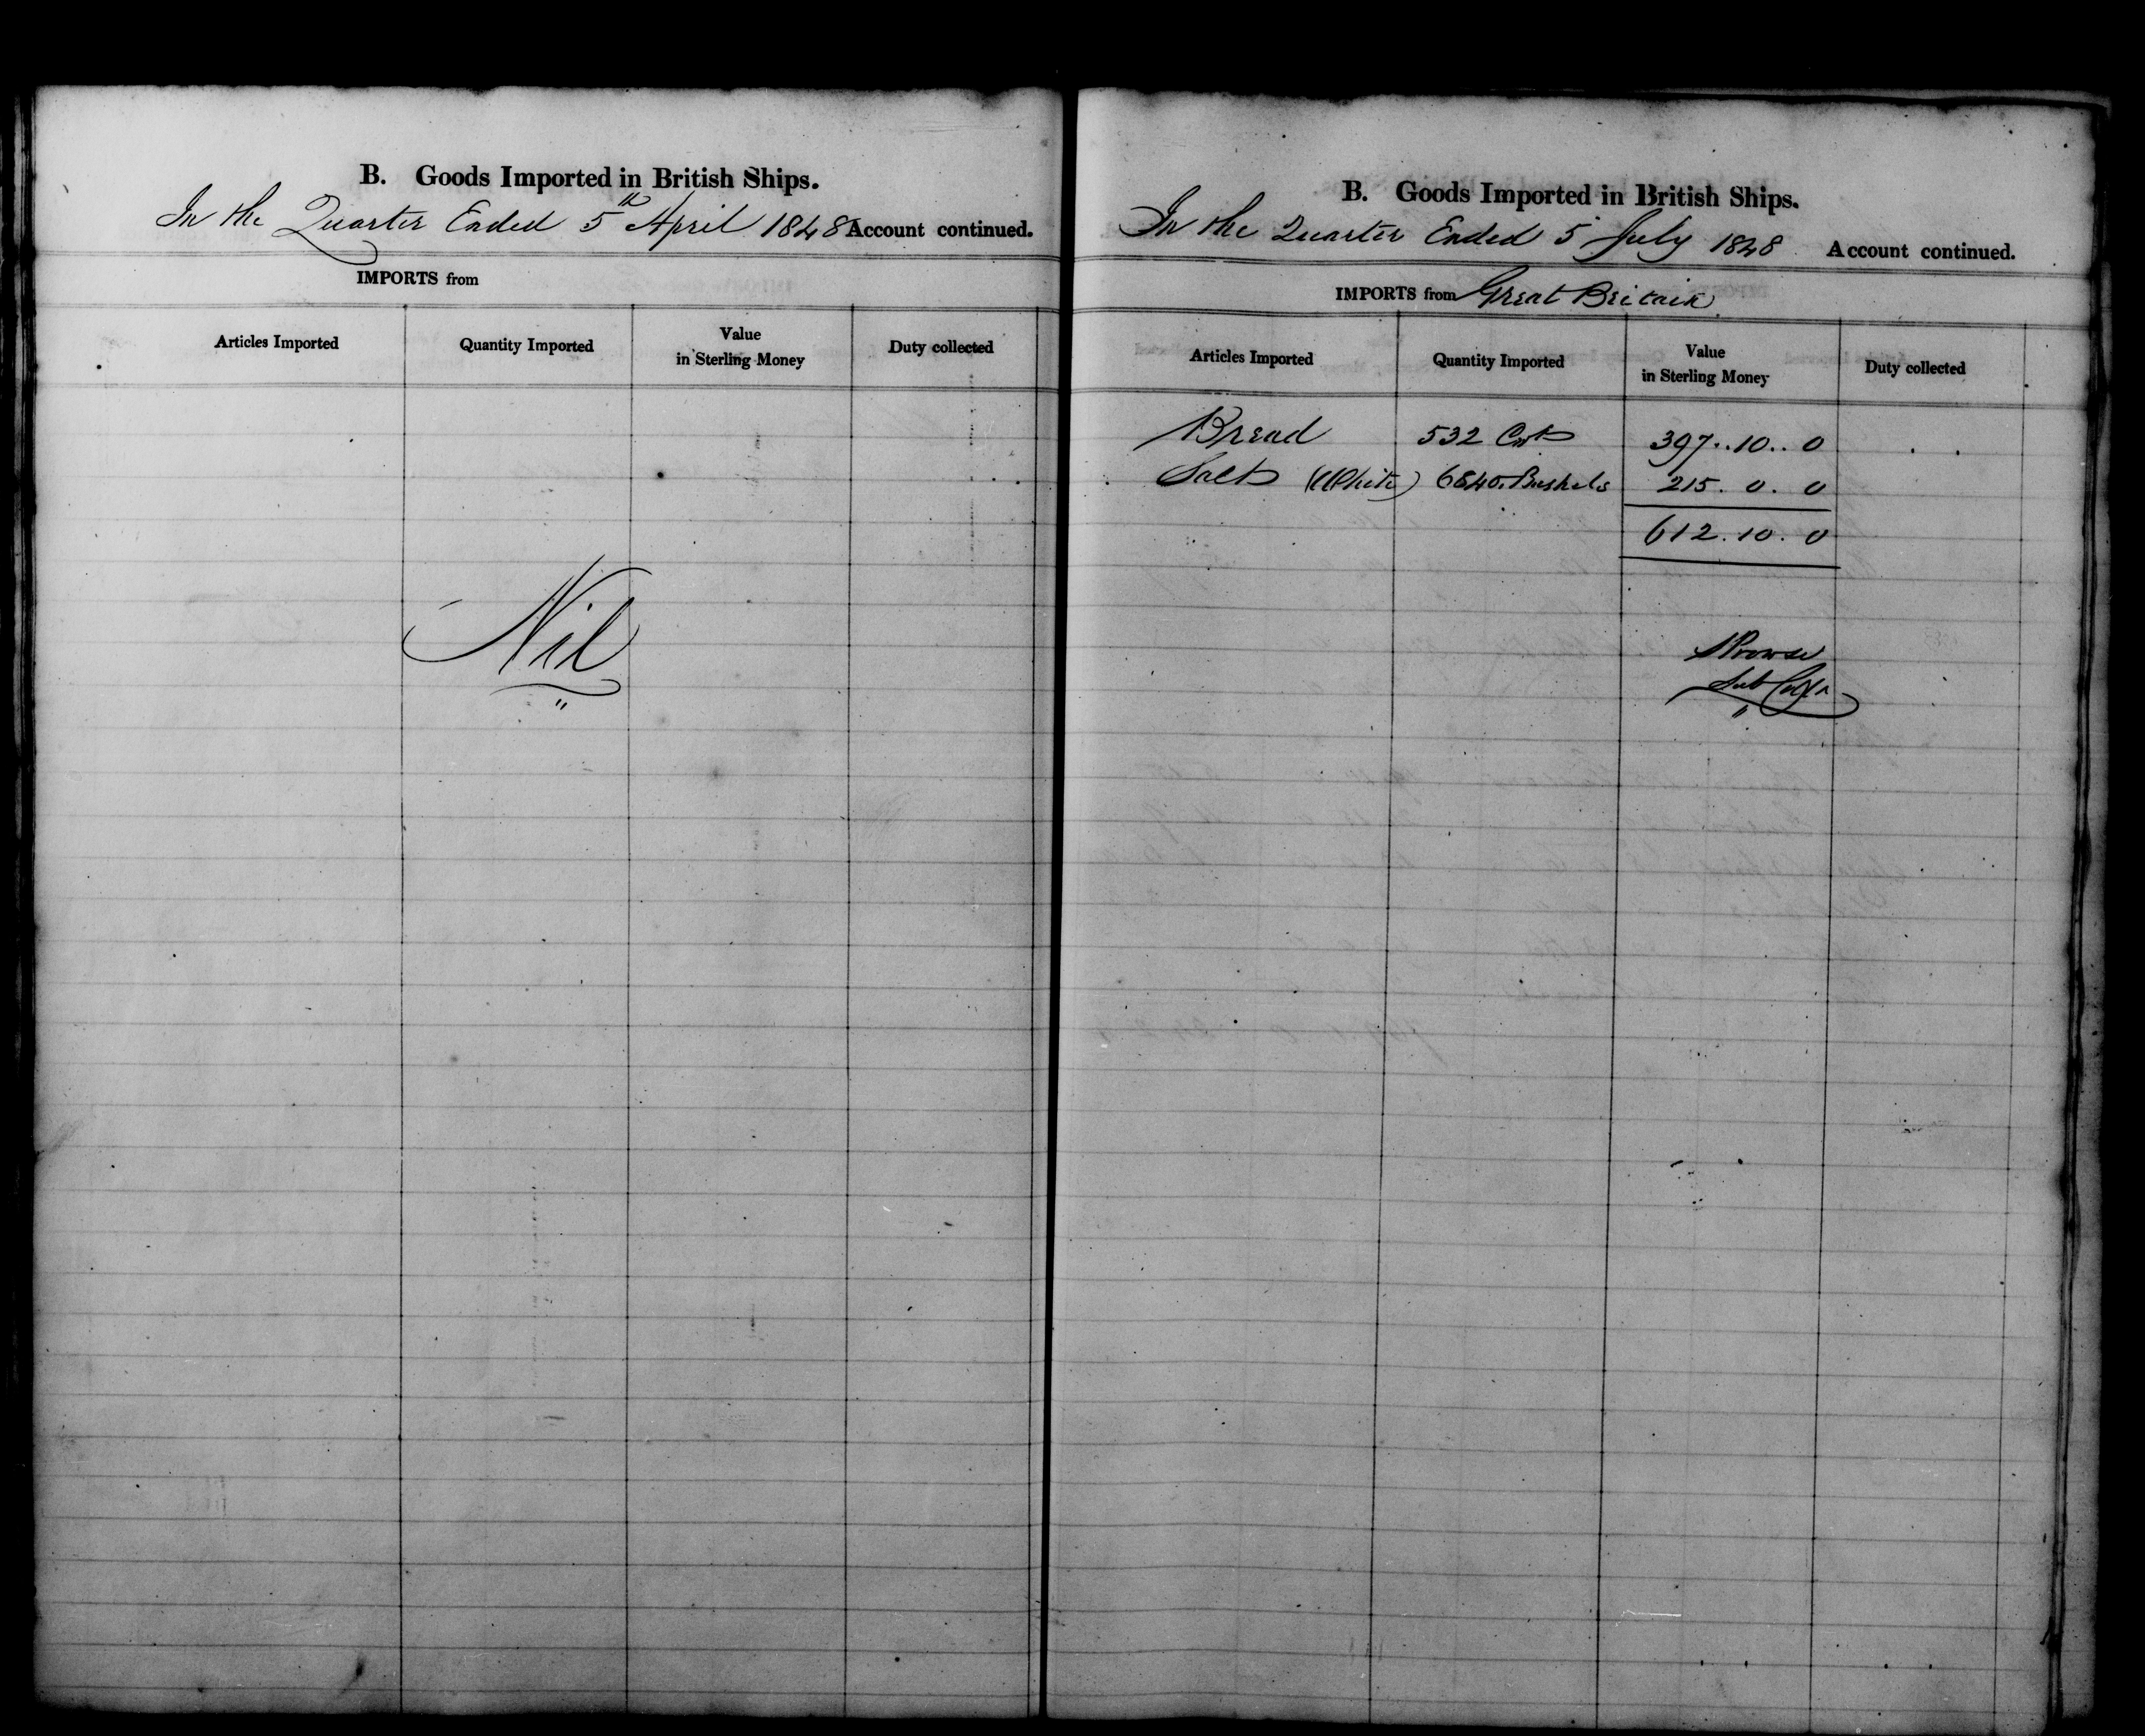 B. Goods Imported in British Ships.
In the Quarter Ended 5th April 1848 Account continued.
IMPORTS from
Articles Imported Quantity Imported Value in Sterling Money Duty collected
Nil
B. Goods Imported in British Ships.
In the Quarter Ended 5 July 1848 Account continued.
IMPORTS from Great Britain
Articles Imported Quantity Imported Value in Sterling Money Duty collected
Bread 532 Cwts 397..10..0
Salt (White) 6840 Bushels 215. 0. 0
612. 10. 0
Prowse
Sub Collr